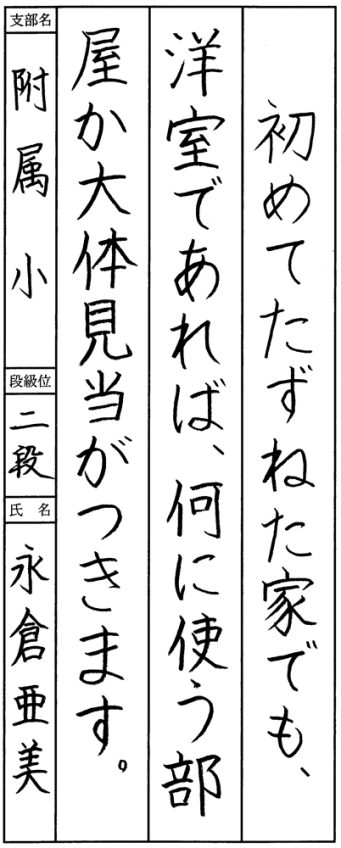 初めてたずねた家でも、
洋室であれば、何に使う部
屋か大体見当がつきます。
支部名
附属小
段級位
二段
氏名
永倉亜美